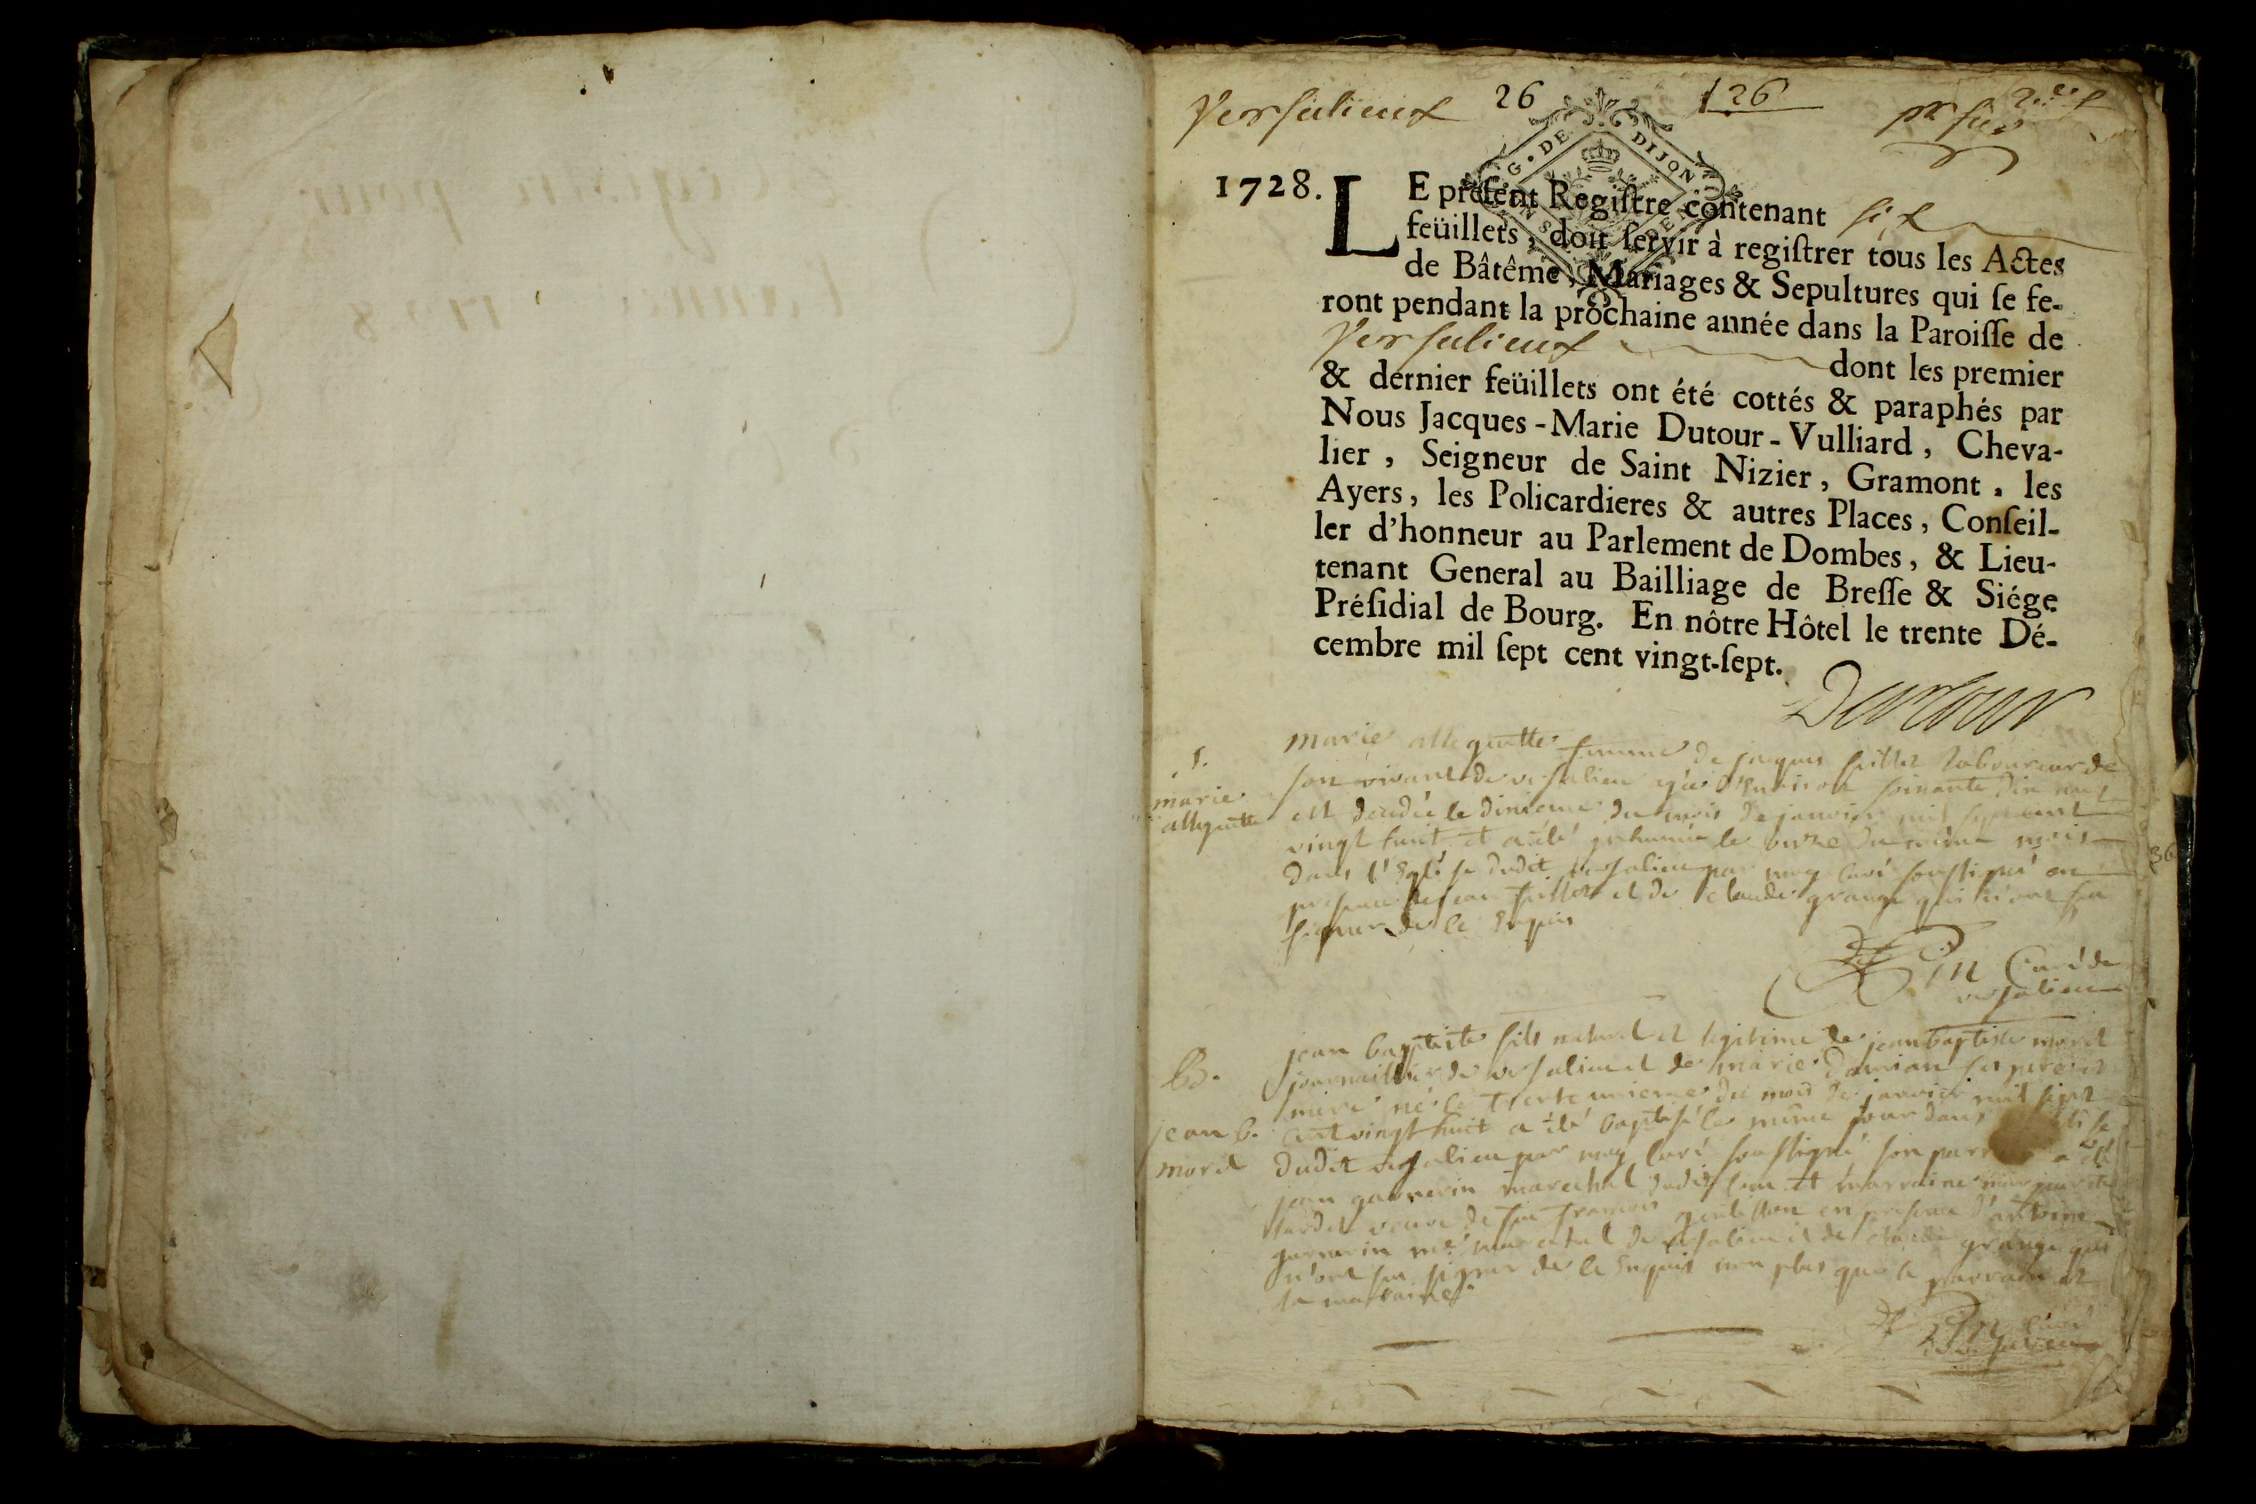 Versalieux 26 126
1728. LE present Registre contenant six
feüillets, doit servir à registrer tous les Actes
de Bâtême, Mariages & Sepultures qui se fe-
ront pendant la prochaine année dans la Paroisse de
Versalieux dont les premier
& dernier feüillets ont été cottés & paraphés par
Nous Jacques-Marie Dutour-Vulliard, Cheva-
lier, Seigneur de Saint Nizier, Gramont, les
Ayers, les Policardieres & autres Places, Conseil-
ler d'honneur au Parlement de Dombes, & Lieu-
tenant General au Bailliage de Bresse & Siége
Présidial de Bourg. En nôtre Hôtel le trente Dé-
cembre mil sept cent vingt-sept.
Dutour
G. DE DIJON
S.
marie
alleguette
marie alleguette femme de jaques laboureur de
son vivant de versalieu soixante dix
est decedée le dixieme du mois de janvier mil sept cent
vingt huit et a été inhumée le onze du même mois
dans l'Eglise dudit versalieu par moy curé soussigné en
presence de jean et de claude grange qui n'ont su
signer de ce enquis
curé de
versalieu
B.
jean b.
morel
jean baptiste fils naturel et legitime de jean baptiste morel
journailler de versalieu et de marie ses pere et
mere né le trente unieme du mois de janvier mil sept
cent vingt huit a été baptisé le même jour dans
dudit versalieu par moy curé soussigné son a été
jean garnerin marechal dudit lieu et marraine marguerite
tardet veuve de feu françois en presence d'antoine
garnerin me marechal de versalieu et de claude grange qui
n'ont su signer de ce enquis non plus que le parrain et
la marraine.
curé
de versalieu
36